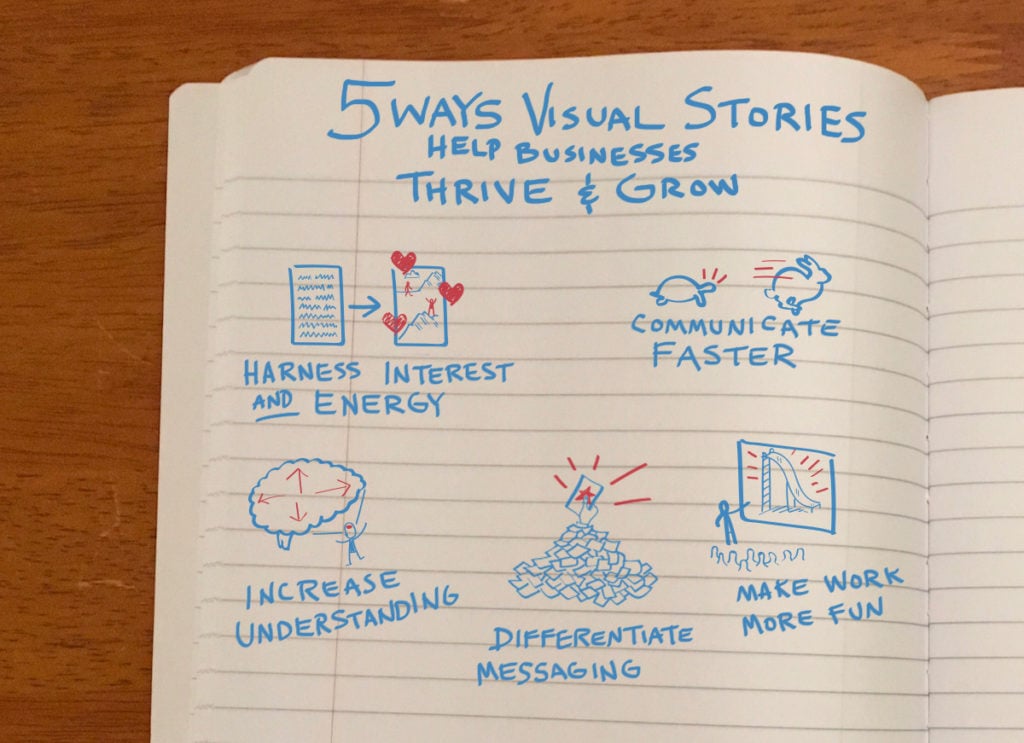 5 WAYS VISUAL STORIES
HELP BUSINESSES
THRIVE & GROW
HARNESS INTEREST
AND ENERGY
COMMUNICATE
FASTER
INCREASE
UNDERSTANDING
DIFFERENTIATE
MESSAGING
MAKE WORK
MORE FUN